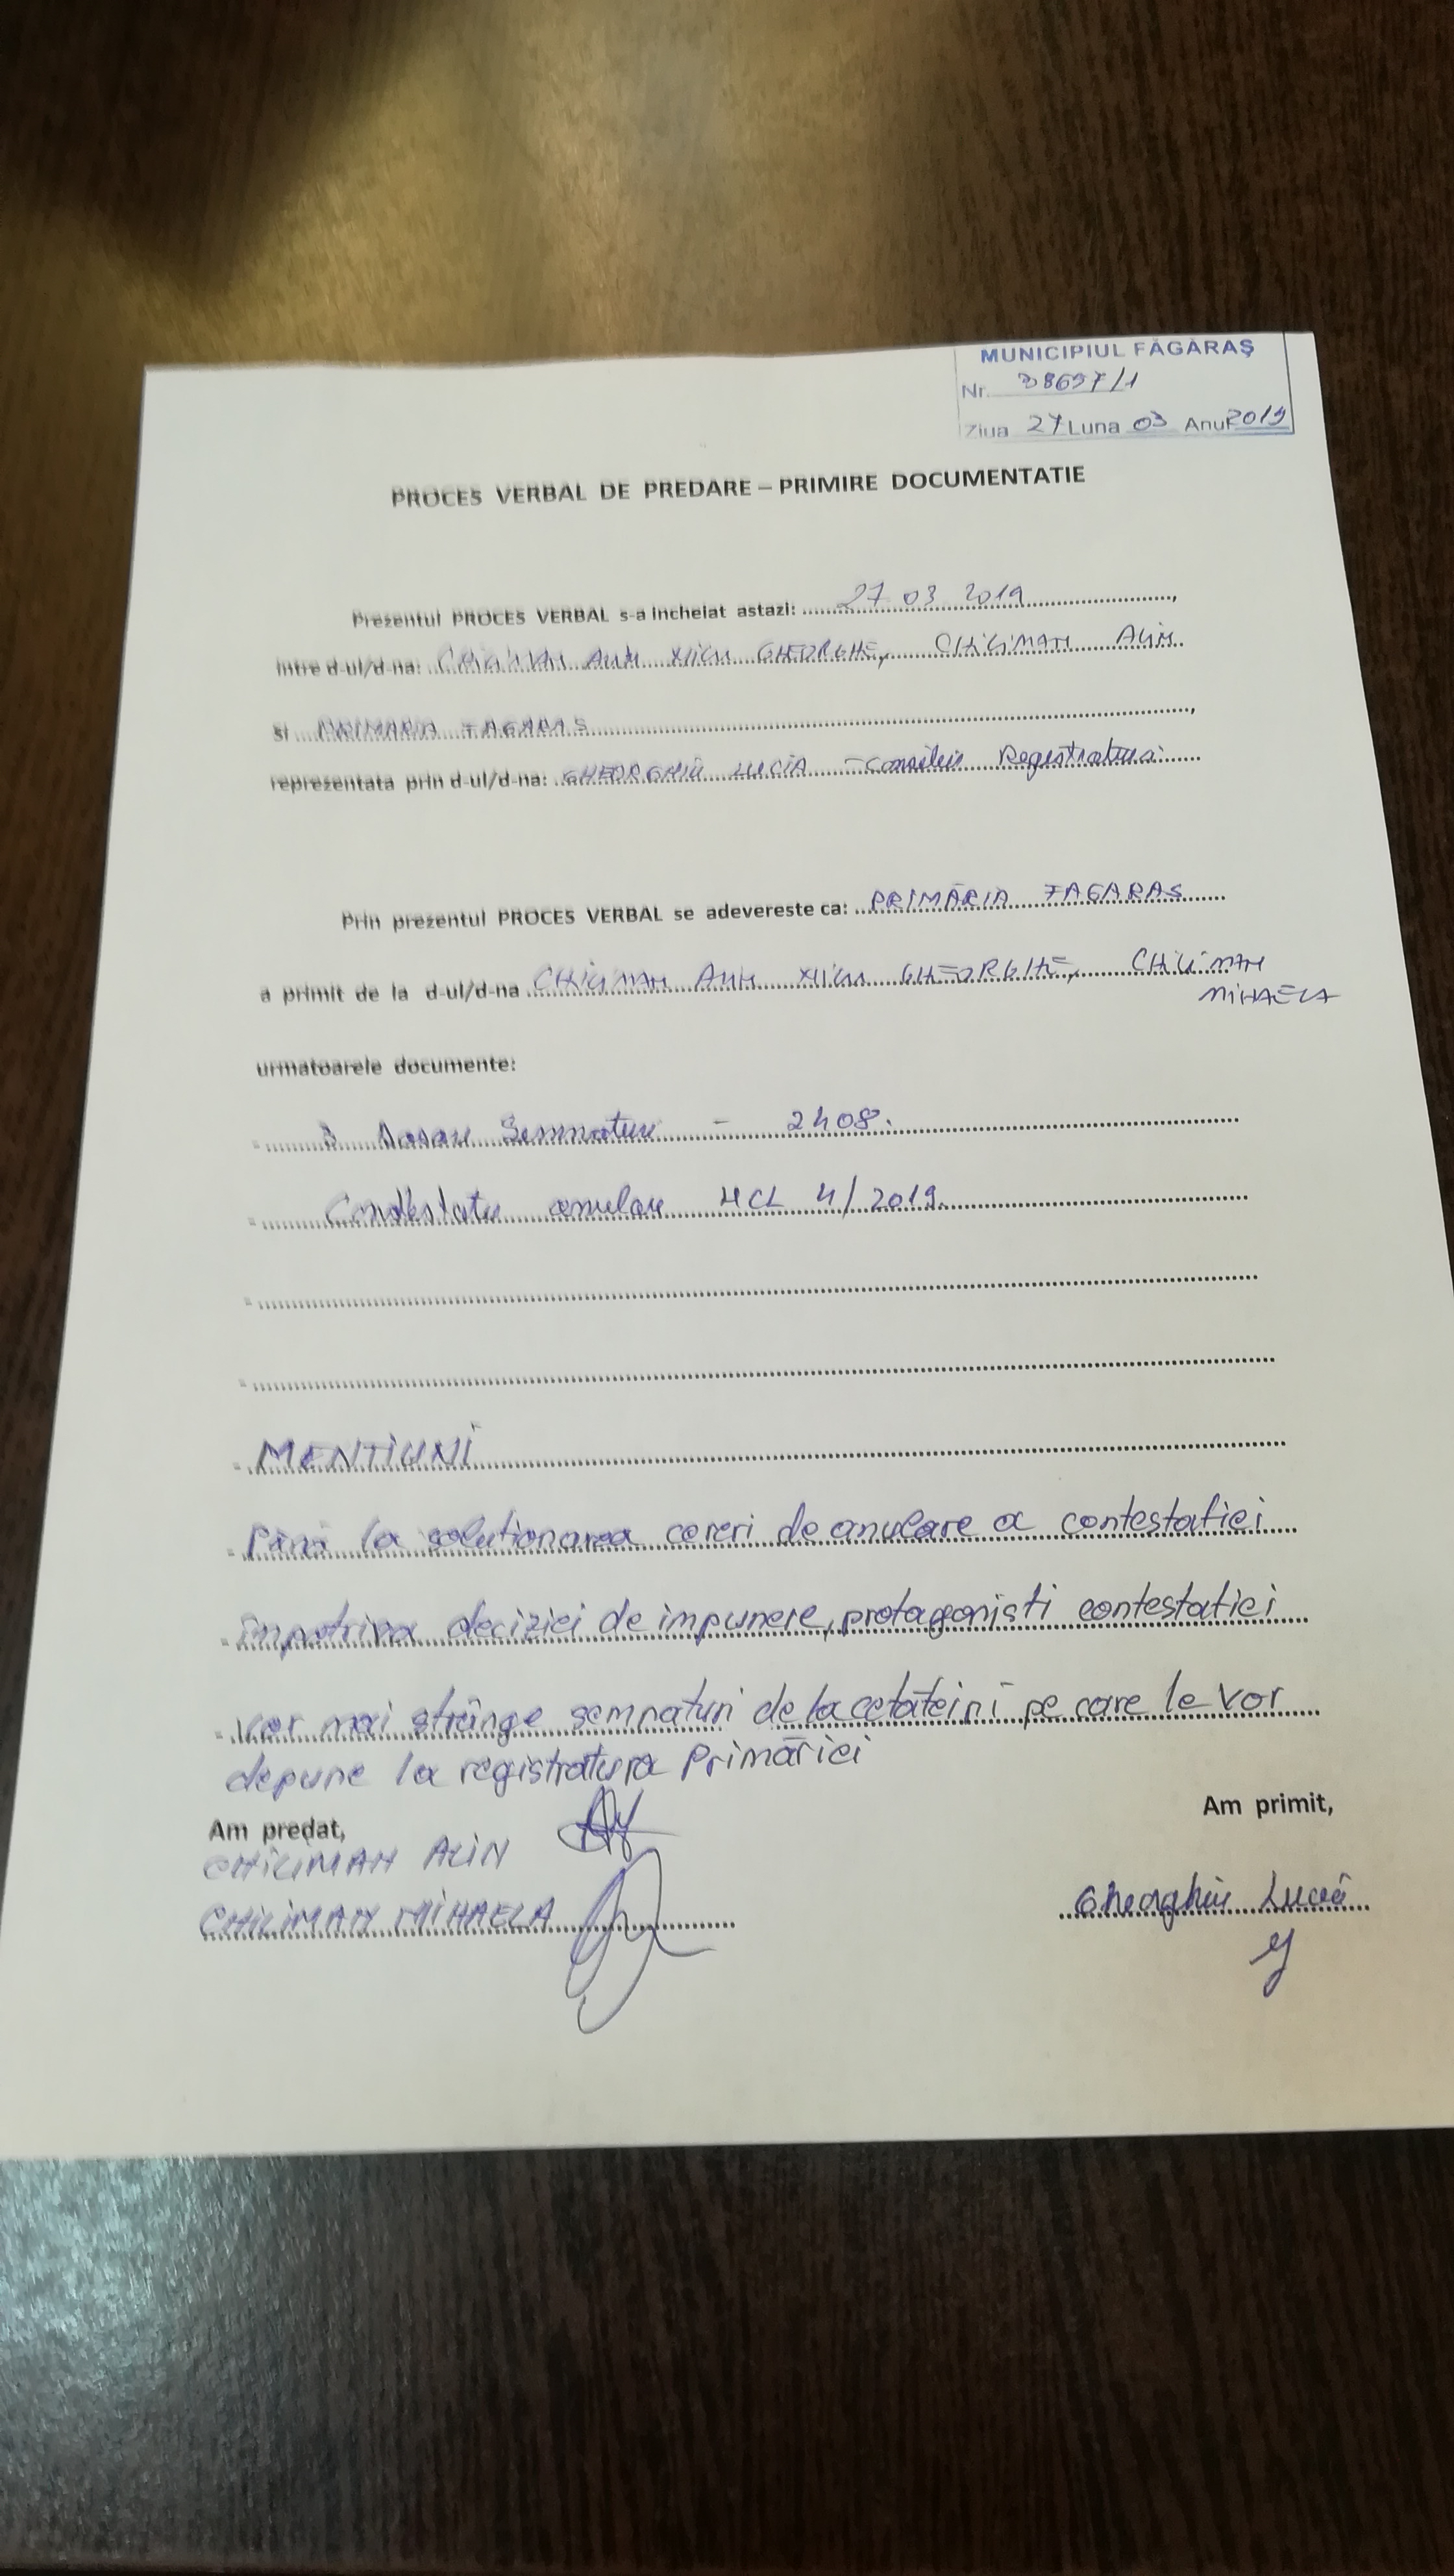 MUNICIPIUL FĂGĂRAŞ
Nr. 38697/1
Ziua 27 Luna 03 Anul 2019
PROCES VERBAL DE PREDARE – PRIMIRE DOCUMENTATIE
Prezentul PROCES VERBAL s-a incheiat astazi: 27 03 2019,
intre d-ul/d-na: CHILIMAN GHEORGHE, CHILIMAN ALIN
si PRIMARIA FAGARAS,
reprezentata prin d-ul/d-na: GHEORGHIU LUCIA - Consilier Registratura
Prin prezentul PROCES VERBAL se adevereste ca: PRIMĂRIA FAGARAS
a primit de la d-ul/d-na CHILIMAN GHEORGHE, CHILIMAN
MIHAELA
urmatoarele documente:
- Semnaturi - 2408.
- anulare HCL 4/2019.
-
-
- MENTIUNI
- Până la solutionarea cereri de anulare a contestatiei
- împotriva deciziei de impunere, protagonisti contestatiei
- vor mai strânge semnaturi de la cetăteini pe care le vor
depune la registratura Primăriei
Am predat,
CHILIMAN ALIN
CHILIMAN MIHAELA
Am primit,
Gheorghiu Lucia